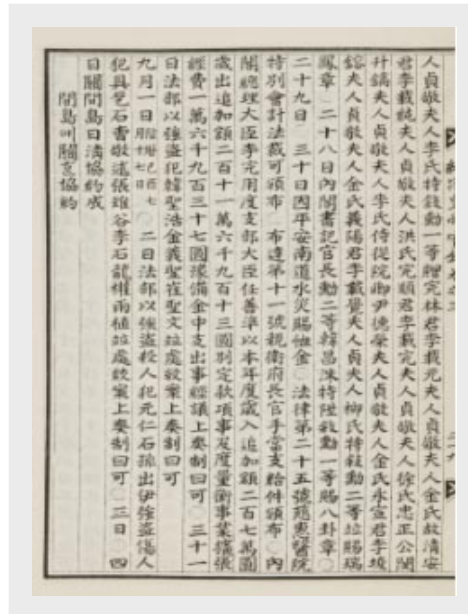 人貞敬夫人李氏特敍勳一等贈完林君李載元夫人貞敬夫人金氏故淸安
君李載純夫人貞敬夫人洪氏完順君李載完夫人貞敬夫人徐氏忠正公閔
升鎬夫人貞敬夫人李氏侍從院卿尹德榮夫人貞敬夫人金氏永宣君李埈
鎔夫人貞敬夫人金氏義陽君李載覺夫人貞夫人柳氏特敍勳二等竝賜瑞
鳳章○二十八日內閣書記官長勳二等韓昌洙特陞敍勳一等賜八卦章○
二十九日○三十日因平安南道水災賜恤金○法律第二十五號慈惠醫院
特別會計法裁可頒布○布達第十一號親衛府長官手當支給件頒布○內
閣總理大臣李完用度支部大臣任善準以本年度歲入追加額二百七萬圜
歲出追加額二百十一萬六千九百十三圜別定款項事及度量衡事業擴張
經費一萬六千九百三十七圜豫備金中支出事經議上奏制曰可○三十一
日法部以強盜犯韓聖浩金義聖崔聖文竝處絞案上奏制曰可
九月一日陰曆己酉七月十七日○二日法部以強盜殺人犯元仁石孫出伊強盜傷人
犯具乭石曹敬述張雄谷李石龍權雨植竝處絞案上奏制曰可○三日○四
日關間島日淸協約成
間島ニ關スル協約